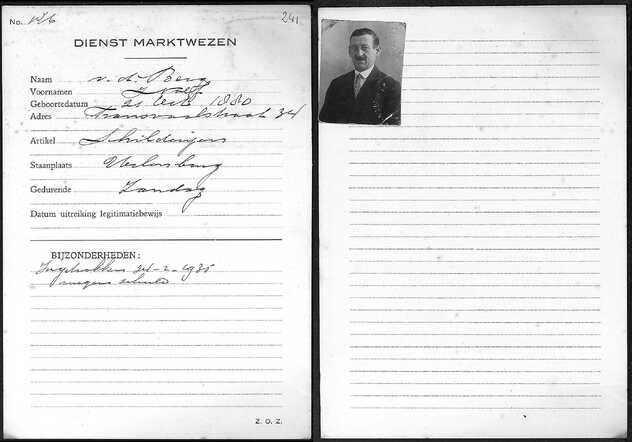 No. 126
241
DIENST MARKTWEZEN
Naam v. d. Berg
Voornamen
Geboortedatum 1880
Adres Transvaalstraat 34
Artikel Schilderijen
Staanplaats Uilenburg
Gedurende Zondag
Datum uitreiking legitimatiebewijs
BIJZONDERHEDEN:
Ingetrokken -2-1935
wegens schuld
Z. O. Z.